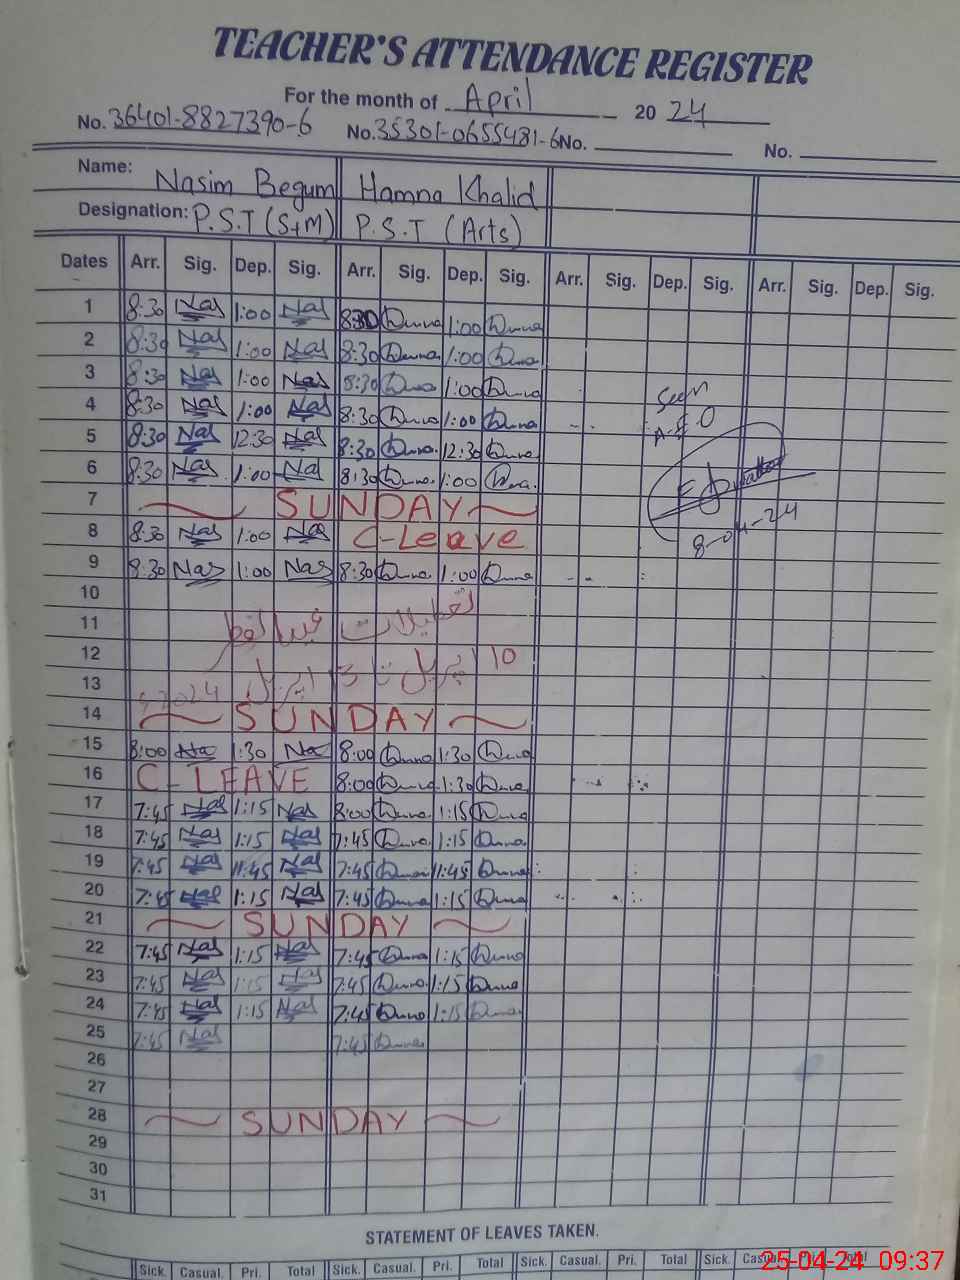 TEACHER'S ATTENDANCE REGISTER
For the month of April 2024
No. 36401-8827390-6 No. 35301-0655481-6 No. No.
Name: Nasim Begum Hamna Khalid
Designation: P.S.T (S+M) P.S.T (Arts)
Dates Arr. Sig. Dep. Sig. Arr. Sig. Dep. Sig. Arr. Sig. Dep. Sig. Arr. Sig. Dep. Sig.
1 8:30 Nas 1:00 Nas 8:30 1:00
2 8:30 Nas 1:00 Nas 8:30 1:00
3 8:30 Nas 1:00 Nas 8:30 1:00
Seen
4 8:30 Nas 1:00 Nas 8:30 1:00
A.E.O
5 8:30 Nas 12:30 Nas 8:30 12:30
6 8:30 Nas 1:00 Nas 8:30 1:00
7 SUNDAY
8-04-24
8 8:30 Nas 1:00 Nas C-Leave
9 8:30 Nas 1:00 Nas 8:30 1:00
10
11 تعطیلات عیدالفطر
12
13 10 اپریل تا 13 اپریل 2024ء
14 SUNDAY
15 8:00 Nas 1:30 Nas 8:00 1:30
16 C-LEAVE 8:00 1:30
17 7:45 Nas 1:15 Nas 8:00 1:15
18 7:45 Nas 1:15 Nas 7:45 1:15
19 7:45 Nas 11:45 Nas 7:45 11:45
20 7:45 Nas 1:15 Nas 7:45 1:15
21 SUNDAY
22 7:45 Nas 1:15 Nas 7:45 1:15
23 7:45 Nas 1:15 Nas 7:45 1:15
24 7:45 Nas 1:15 Nas 7:45 1:15
25 7:45 Nas 7:45
26
27
28 SUNDAY
29
30
31
STATEMENT OF LEAVES TAKEN.
Sick. Casual. Pri. Total Sick. Casual. Pri. Total Sick. Casual. Pri. Total Sick. Casual. Pri. Total
25-04-24 09:37